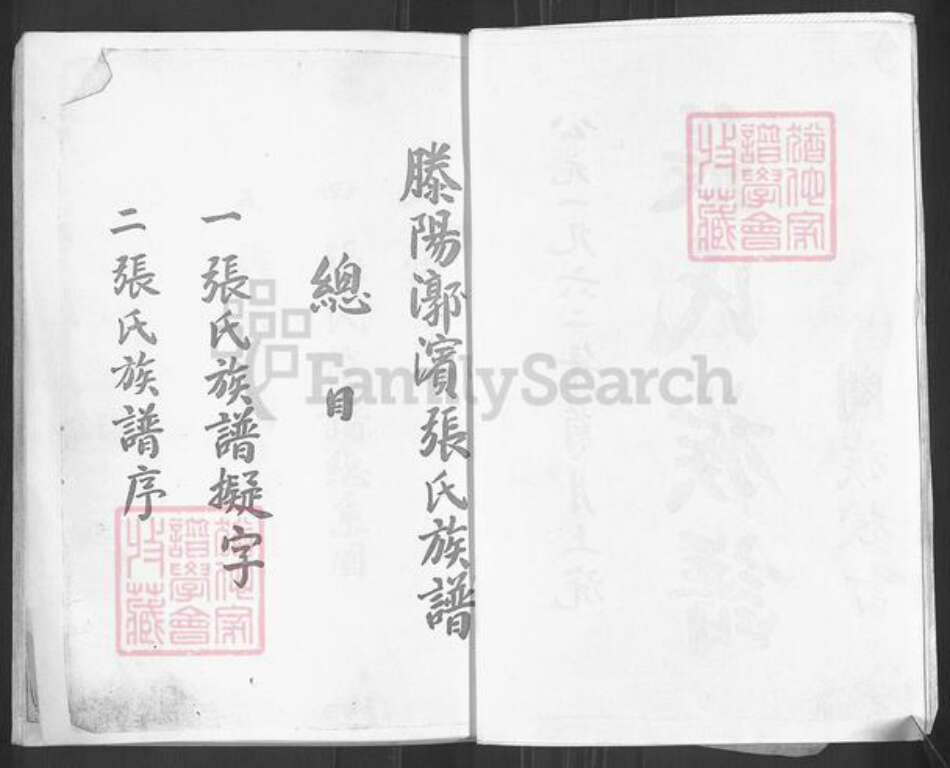 猶他家
譜學會
收藏
滕陽漷濱張氏族譜
總目
一張氏族譜擬字
二張氏族譜序
猶他家
譜學會
收藏
FamilySearch